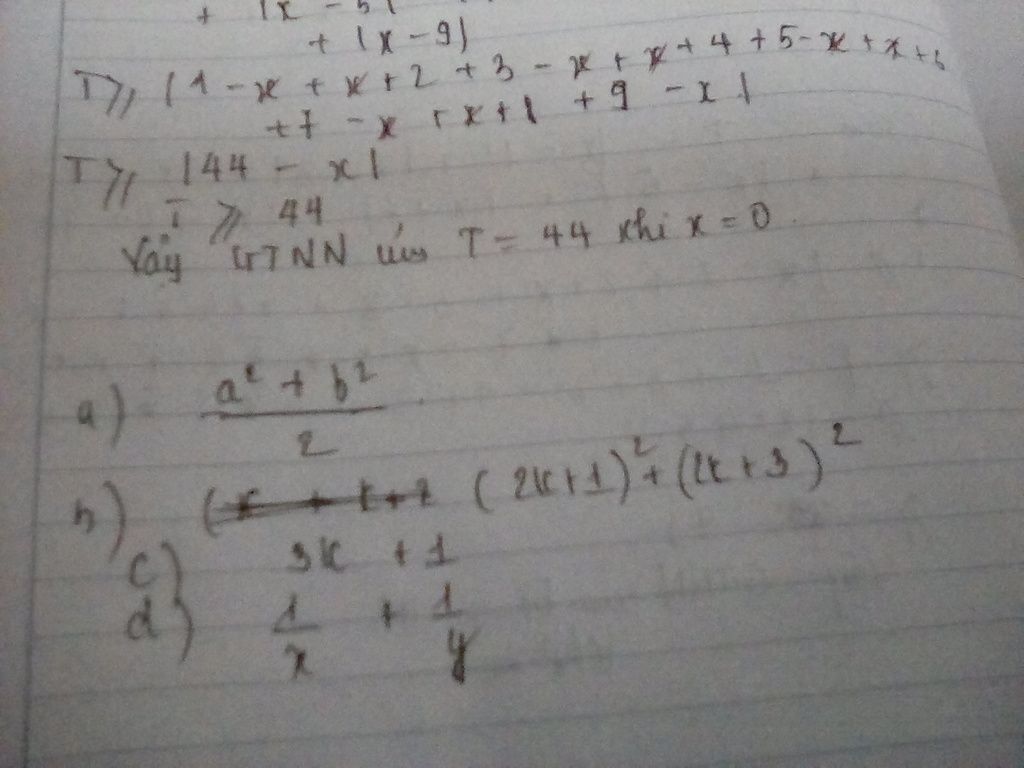 + |x - 5|
+ |x - 9|
T ⩾ |1 - x + x + 2 + 3 - x + x + 4 + 5 - x + x + 6
+ 7 - x + x + 1 + 9 - x|
T ⩾ |44 - x|
T ⩾ 44
Vậy GTNN của T = 44 khi x = 0.
a) \frac{a² + b²}{2}
b) (2k+1)² + (2k+3)²
c) 3k + 1
d) \frac{1}{x} + \frac{1}{y}